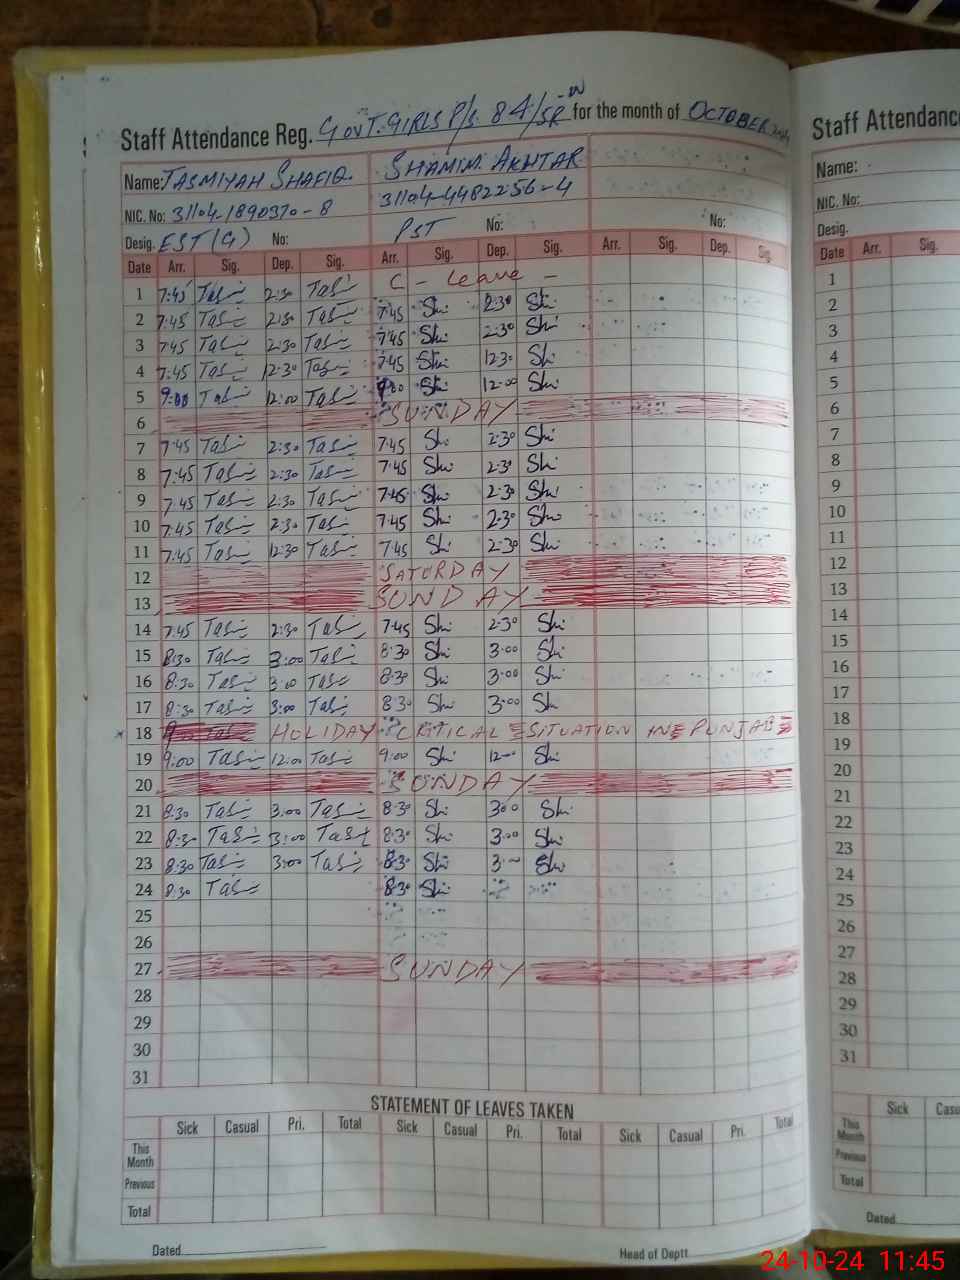 Staff Attendance Reg. GOVT. GIRLS P/S 84/SR -W for the month of OCTOBER
Name: TASMIYAH SHAFIQ SHAMIM AKHTAR
NIC. No: 31104-1890370-8 31104-4482256-4
Desig. EST (G) No: PST No: No:
Date Arr. Sig. Dep. Sig. Arr. Sig. Dep. Sig. Arr. Sig. Dep. Sig.
1 7:45 Tas 2:30 Tas C - Leave -
2 7:45 Tas 2:30 Tas 7:45 Shi 2:30 Shi
3 7:45 Tas 2:30 Tas 7:45 Shi 2:30 Shi
4 7:45 Tas 12:30 Tas 7:45 Shi 12:30 Shi
5 9:00 Tas 12:00 Tas 9:00 Shi 12:00 Shi
6 SUNDAY
7 7:45 Tas 2:30 Tas 7:45 Shi 2:30 Shi
8 7:45 Tas 2:30 Tas 7:45 Shi 2:30 Shi
9 7:45 Tas 2:30 Tas 7:45 Shi 2:30 Shi
10 7:45 Tas 2:30 Tas 7:45 Shi 2:30 Shi
11 7:45 Tas 12:30 Tas 7:45 Shi 2:30 Shi
12 SATURDAY
13 SUNDAY
14 7:45 Tas 2:30 Tas 7:45 Shi 2:30 Shi
15 8:30 Tas 3:00 Tas 8:30 Shi 3:00 Shi
16 8:30 Tas 3:00 Tas 8:30 Shi 3:00 Shi
17 8:30 Tas 3:00 Tas 8:30 Shi 3:00 Shi
18 HOLIDAY CRITICAL SITUATION IN PUNJAB
19 9:00 Tas 12:00 Tas 9:00 Shi 12:00 Shi
20 SUNDAY
21 8:30 Tas 3:00 Tas 8:30 Shi 3:00 Shi
22 8:30 Tas 3:00 Tas 8:30 Shi 3:00 Shi
23 8:30 Tas 3:00 Tas 8:30 Shi 3:00 Shi
24 8:30 Tas 8:30 Shi
25
26
27 SUNDAY
28
29
30
31
STATEMENT OF LEAVES TAKEN
Sick Casual Pri. Total Sick Casual Pri. Total Sick Casual Pri. Total
This Month
Previous
Total
Dated Head of Deptt.
Staff Attendance
Name:
NIC. No:
Desig.
Date Arr. Sig.
1
2
3
4
5
6
7
8
9
10
11
12
13
14
15
16
17
18
19
20
21
22
23
24
25
26
27
28
29
30
31
Sick
This Month
Previous
Total
Dated
24-10-24 11:45